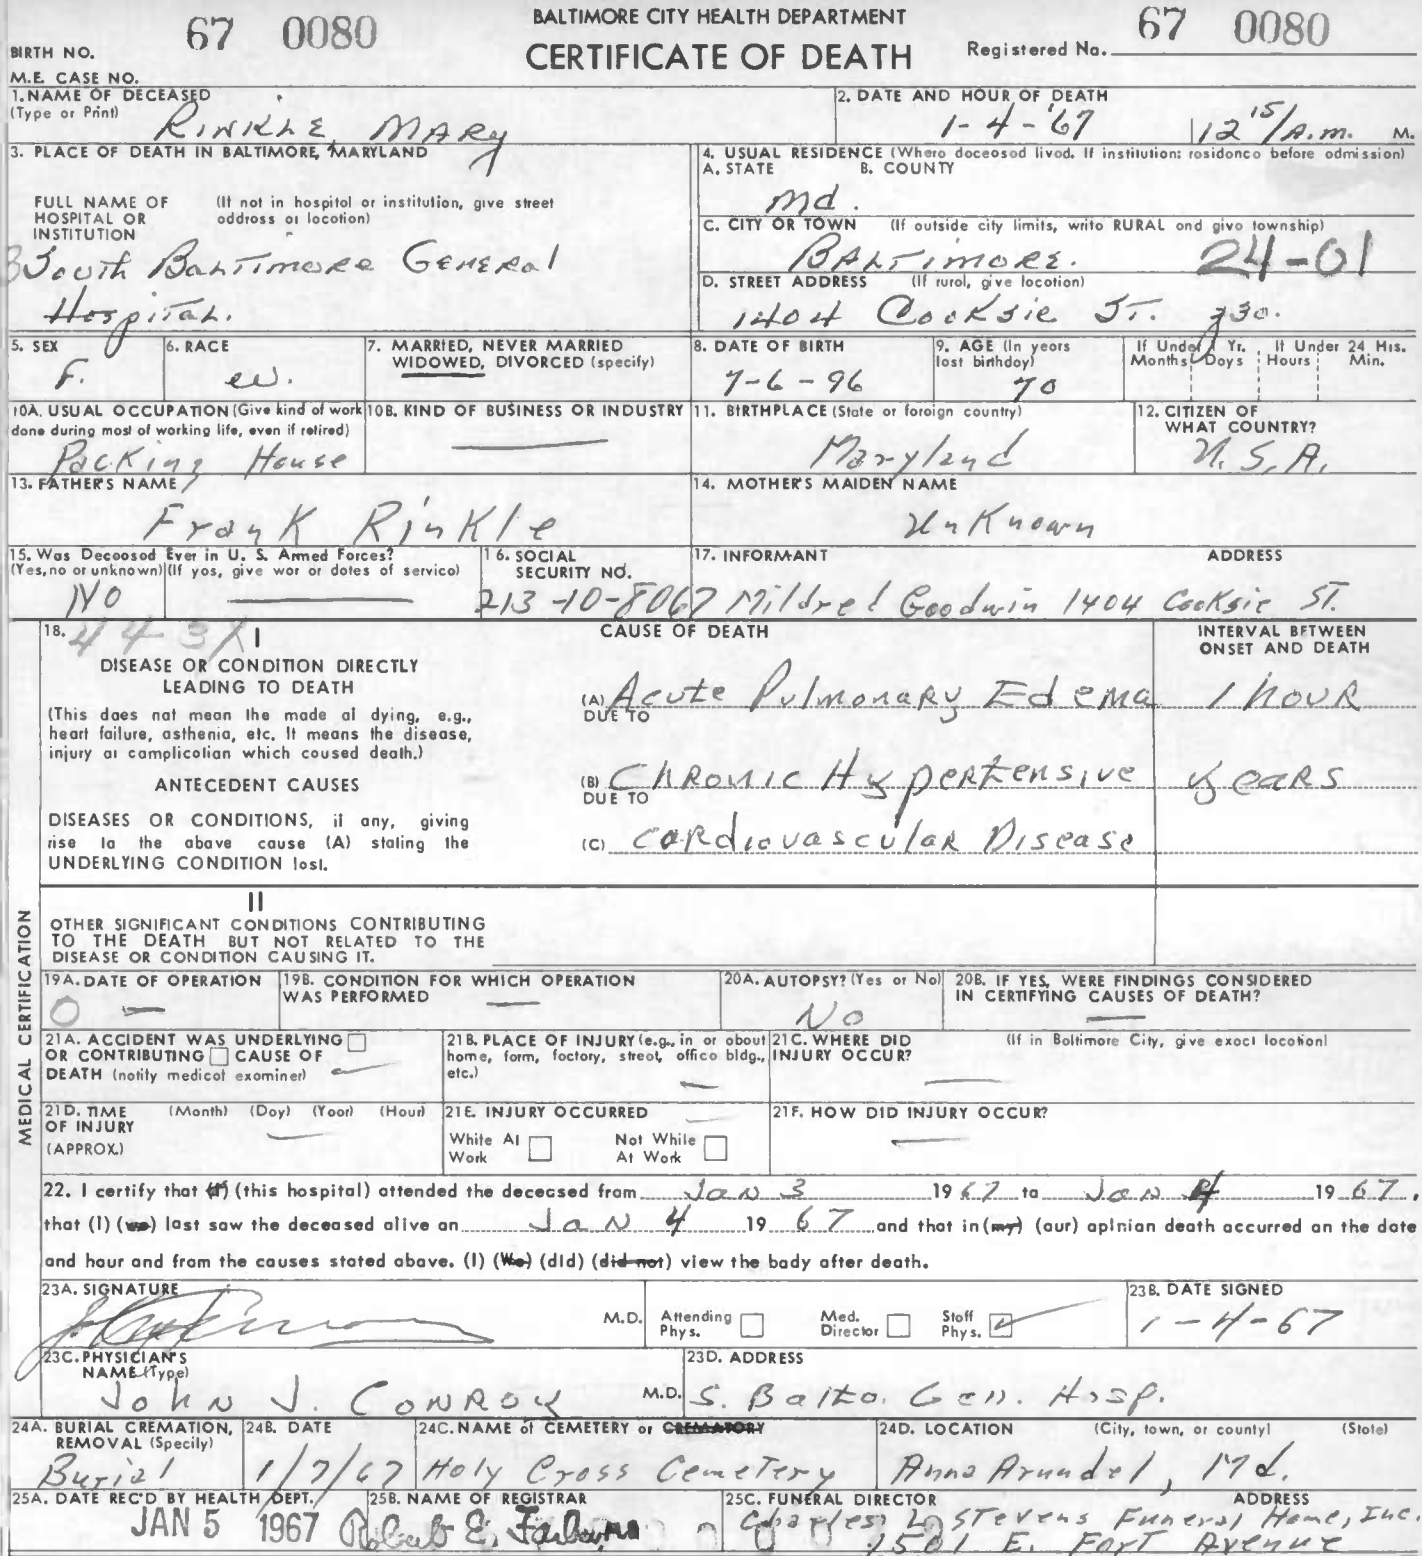 BALTIMORE CITY HEALTH DEPARTMENT
CERTIFICATE OF DEATH
67 0080
BIRTH NO.
M.E. CASE NO.
Registered No. 67 0080
1. NAME OF DECEASED
(Type or Print)
RINKLE, MARY
2. DATE AND HOUR OF DEATH
1-4-'67 12 15/A.m. M.
3. PLACE OF DEATH IN BALTIMORE, MARYLAND
FULL NAME OF HOSPITAL OR INSTITUTION
(If not in hospital or institution, give street address or location)
South Baltimore General
Hospital.
4. USUAL RESIDENCE (Where deceased lived. If institution: residence before admission)
A. STATE B. COUNTY
Md.
C. CITY OR TOWN (If outside city limits, write RURAL and give township)
BALTIMORE. 24-01
D. STREET ADDRESS (If rural, give location)
1404 Cooksie ST. 230.
5. SEX
F.
6. RACE
W.
7. MARRIED, NEVER MARRIED
WIDOWED, DIVORCED (specify)
8. DATE OF BIRTH
7-6-96
9. AGE (In years
last birthday)
70
If Under 1 Yr. If Under 24 Hrs.
Months Days Hours Min.
10A. USUAL OCCUPATION (Give kind of work
done during most of working life, even if retired)
Packing House
10B. KIND OF BUSINESS OR INDUSTRY
11. BIRTHPLACE (State or foreign country)
Maryland
12. CITIZEN OF
WHAT COUNTRY?
U.S.A.
13. FATHER'S NAME
Frank Rinkle
14. MOTHER'S MAIDEN NAME
UnKnown
15. Was Deceased Ever in U. S. Armed Forces?
(Yes, no or unknown) (If yes, give war or dates of service)
No
16. SOCIAL
SECURITY NO.
213-10-8067
17. INFORMANT ADDRESS
Mildred Goodwin 1404 Cooksie ST.
18. 443X I
DISEASE OR CONDITION DIRECTLY
LEADING TO DEATH
(This does not mean the mode of dying, e.g.,
heart failure, asthenia, etc. It means the disease,
injury or complication which caused death.)
ANTECEDENT CAUSES
DISEASES OR CONDITIONS, if any, giving
rise to the above cause (A) stating the
UNDERLYING CONDITION last.
CAUSE OF DEATH
INTERVAL BETWEEN
ONSET AND DEATH
(A) Acute Pulmonary Edema 1 hour
DUE TO
(B) Chronic Hypertensive years
DUE TO
(C) Cardiovascular Disease
MEDICAL CERTIFICATION
II
OTHER SIGNIFICANT CONDITIONS CONTRIBUTING
TO THE DEATH BUT NOT RELATED TO THE
DISEASE OR CONDITION CAUSING IT.
19A. DATE OF OPERATION
O —
19B. CONDITION FOR WHICH OPERATION
WAS PERFORMED —
20A. AUTOPSY? (Yes or No)
No
20B. IF YES, WERE FINDINGS CONSIDERED
IN CERTIFYING CAUSES OF DEATH?
—
21A. ACCIDENT WAS UNDERLYING
OR CONTRIBUTING CAUSE OF
DEATH (notify medical examiner)
21B. PLACE OF INJURY (e.g., in or about
home, farm, factory, street, office bldg.,
etc.)
21C. WHERE DID
INJURY OCCUR?
(If in Baltimore City, give exact location)
21D. TIME (Month) (Day) (Year) (Hour)
OF INJURY
(APPROX.)
21E. INJURY OCCURRED
While At Work Not While At Work
21F. HOW DID INJURY OCCUR?
22. I certify that (I) (this hospital) attended the deceased from Jan 3 1967 to Jan 4 1967,
that (I) (we) last saw the deceased alive on Jan 4 1967 and that in (my) (our) opinion death occurred on the date
and hour and from the causes stated above. (I) (We) (did) (did not) view the body after death.
23A. SIGNATURE
M.D.
Attending Phys. Med. Director Staff Phys.
23B. DATE SIGNED
1-4-67
23C. PHYSICIAN'S
NAME (Type)
John J. Conroy M.D.
23D. ADDRESS
S. Balto. Gen. Hosp.
24A. BURIAL CREMATION,
REMOVAL (Specify)
Burial
24B. DATE
1/7/67
24C. NAME of CEMETERY or CREMATORY
Holy Cross Cemetery
24D. LOCATION (City, town, or county) (State)
Anna Arundel, Md.
25A. DATE REC'D BY HEALTH DEPT.
JAN 5 1967
25B. NAME OF REGISTRAR
Robert E. Farber
25C. FUNERAL DIRECTOR ADDRESS
Charles L. Stevens Funeral Home, Inc.
1501 E. Fort Avenue